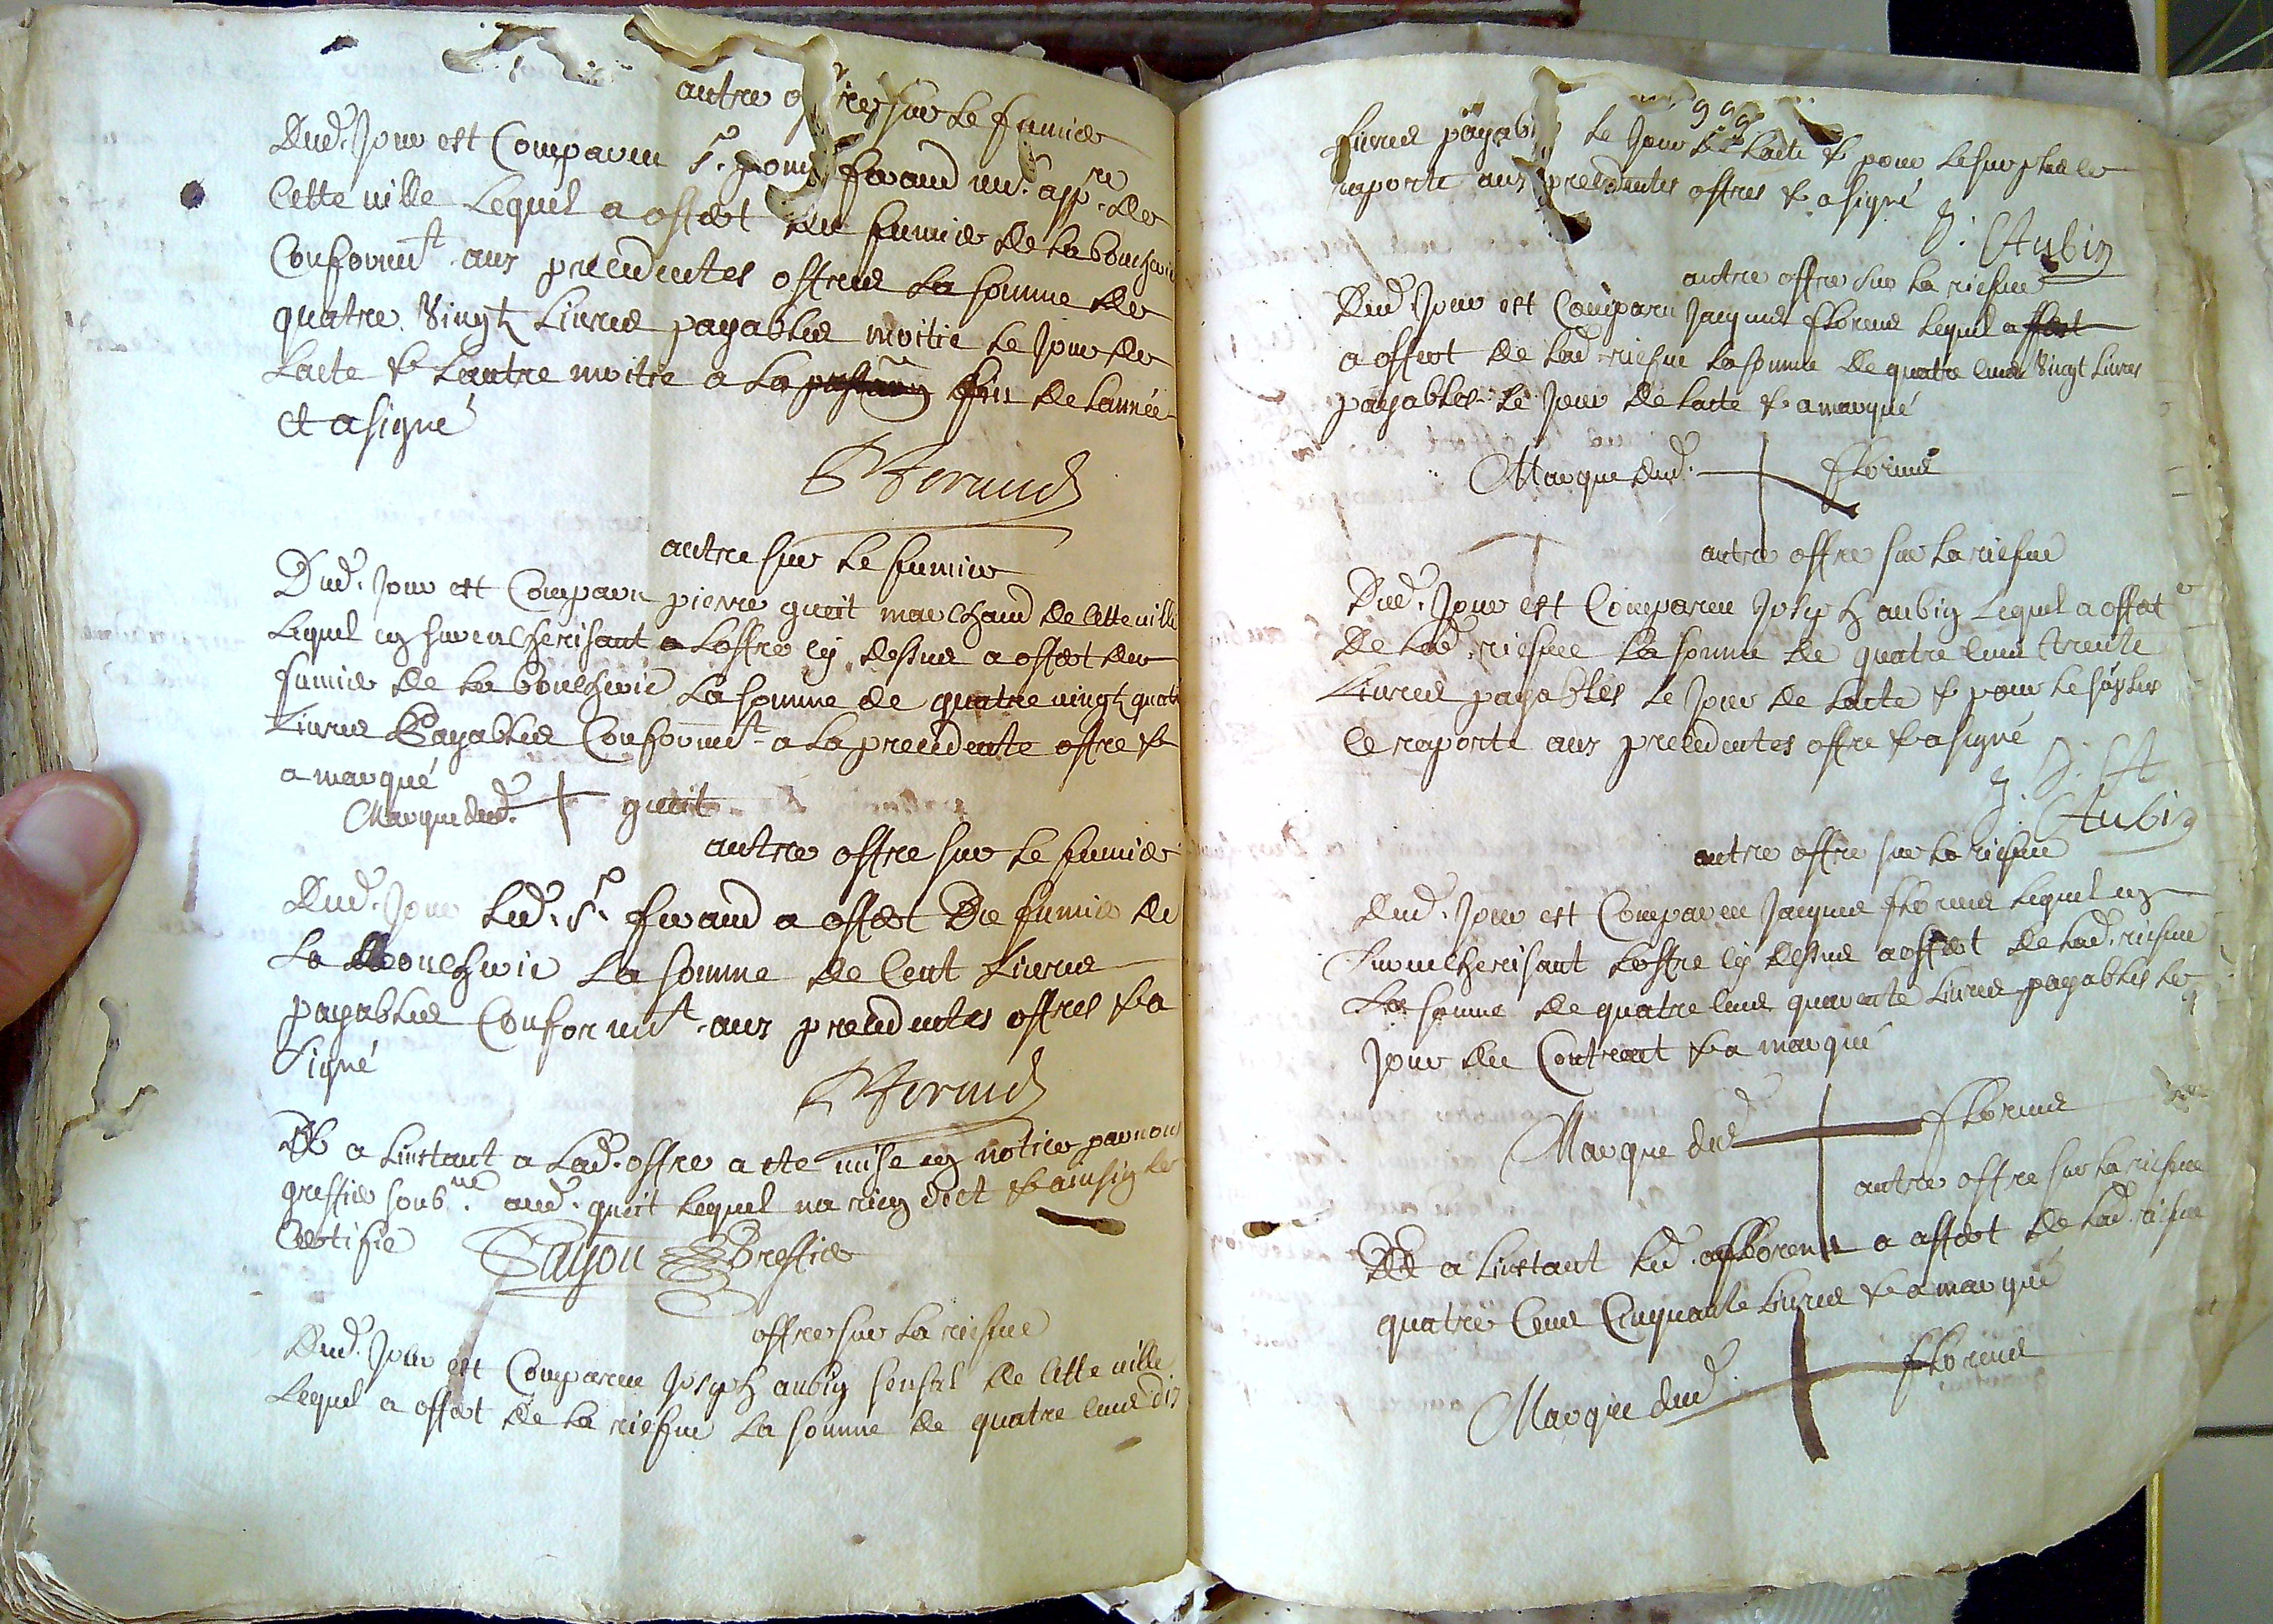 autre offres sur le fumier
Dud. Jour est Comparu Sr. feraud md. appre. de
Cette ville Lequel a offert du fumier de la boucherie
Conformt. aux precedentes offres La somme de
quatre Vingt Livres payables moitié le Jour de
Lacte & Lautre moitié a la fin de Lannée
et a signé
Feraud
autre sur le fumier
Dud. Jour est Comparu pierre gueit marchand de Cette ville
Lequel en surencherisant a Loffre cy dessus a offert du
fumier de la boucherie La somme de quatre vingt quatre
Livres Payables Conformt. a La precedente offre &
a marqué
Marque dud. + gueit
autre offre sur le fumier
Dud. Jour Led. Sr. feraud a offert Du fumier de
La Boucherie La somme de Cent Livres
payables Conformt. aux precedentes offres & a
signé
Feraud
Et a Linstant a Lad. offre a ete mise en notice par nous
greffier soubné. aud. gueit Lequel na rien dict & ainsin le
Certifie Greffier
offre sur La riefve
Dud. Jour est Comparu Joseph aubin sensal de Cette ville
Lequel a offert de la riefve La somme de quatre Cens dix
999
Livres payables le Jour de Lacte & pour le surplus le
raporte aux precedentes offres & a signé
J. Aubin
autre offre sur La riefve
Dud. Jour est Comparu Jacques florens Lequel a offert
a offert de Lad. riefve La somme de quatre Cens Vingt Livres
payables le Jour de Lacte & a marqué
Marque dud. + florens
autre offre sur La riefve
Dud. Jour est Comparu Joseph aubin Lequel a offert
de Lad. riefve La somme de quatre Cens trente
Livres payables le Jour de Lacte & pour le surplus
Ce raporte aux precedentes offre & a signé
J. Aubin
autre offre sur La riefve
Dud. Jour est Comparu Jacques florens Lequel en
surencherisant Loffre cy dessus a offert de Lad. riefve
La somme de quatre Cens quarente Livres payables le
Jour du Contract & a marqué
Marque dud + florens
autre offre sur La riefve
Et a Linstant Led. florens a offert de Lad. riefve
quatre Cens Cinquante Livres & a marqué
Marque dud. + florens